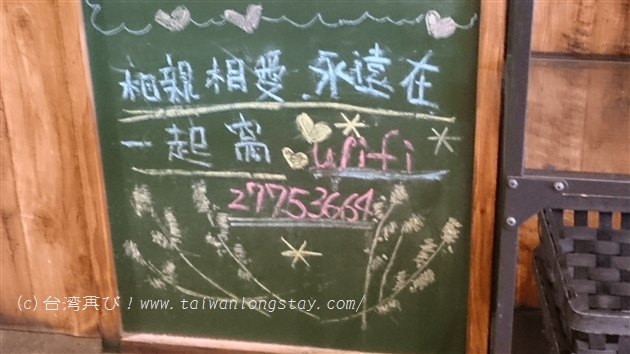 相親相愛 永遠在
一起窩 wifi
27753664
(c)台湾再び！www.taiwanlongstay.com/